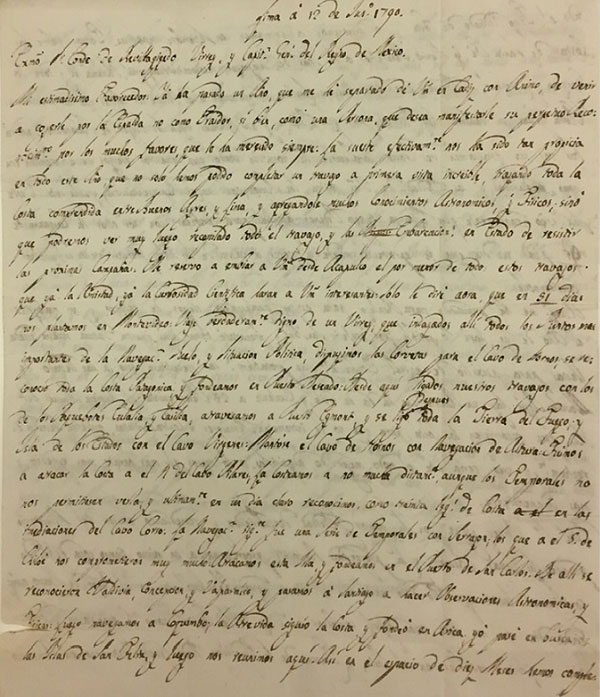 Lima á 12 de Jun.º 1790.
Exmo. Sr. Conde de Revillagigedo Virrey, y Capn. Genl. del Reyno de Mexico.
Mi estimadisimo Favorecedor. Ya ha pasado un Año, que me hé separado de Vm en Cadiz con Animo, de venir
a cogerle por la Espalda no como Traidor, si bien, como una Persona, que desea manifestarle su perpetuo Reco-
nocimto. por los muchos favores, que le ha merecido siempre: La suerte efectivamte. nos ha sido tan propicia
en todo este Año, que no solo hemos podido completar un travajo a primera vista increible trazando toda la
Costa comprendida entre Buenos Ayres, y Lima, y agregandole muchos Conocimientos Astronomicos, y Fisicos, sinó
que podremos ver muy luego recopilado todo el travajo, y las Embarcacions. en Estado de resistir
las proximas Campañas. Me reservo a embiar a Vm. desde Acapulco el por menor de todo estos travajos
que yá la Amistad, yá la Curiosidad Cientifica haran a Vm interesantes: Solo le diré aora, que en 51 dias
nos plantamos en Montevideo: Viaje verdaderamte. digno de un Virrey, que indagados alli todos los Puntos mas
importantes de la Navegacn. Suelo, y Situacion Politica, dispusimos las Corvetas para el Cavo de Hornos, se re-
conoció toda la Costa Patagonica y fondeamos en Puerto Deseado: Desde aqui ligados nuestros travajos con los
de los Paquebotes Eulalia y Casilda, atravesamos a Puerto Egmont, y se ligó Despues toda la Tierra del Fuego, y
Isla de los Estados con el Cavo Virgenes: Montóse el Cavo de Hornos con Navegacion de Altura. Fuimos
a atacar la Costa a el N del Cabo Pilares, la Costeamos a no mucha distanca. aunque los Temporales no
nos permitiesen verla, y ultimamte. en un dia claro reconocimos como treinta legs. de Costa en las
Inmediaciones del Cavo Corzo. La Navegacn. sigte. fue una Serie de Temporales con Cerrazon, los que a el S. de
Chiloé nos comprometieron muy mucho Atracamos esta Isla, y fondeamos en el Puerto de San Carlos. De alli se
reconocieron Valdivia, Concepcion y Valparaiso, y pasamos á Santiago a hacer Observaciones Astronomicas, y
Fisicas: Luego navegamos a Coquimbo, la Atrevida siguió la Costa y fondeó en Arica, yó pasé en busca de
las Islas de San Felix, y luego nos reunimos aqui. Asi en el espacio de diez Meses hemos comple-